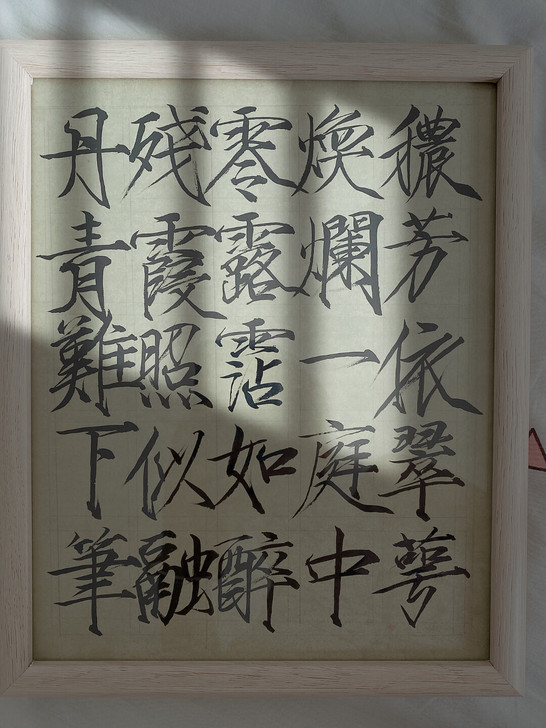 穠芳依翠萼
煥爛一庭中
零露霑如醉
殘霞照似融
丹青難下筆